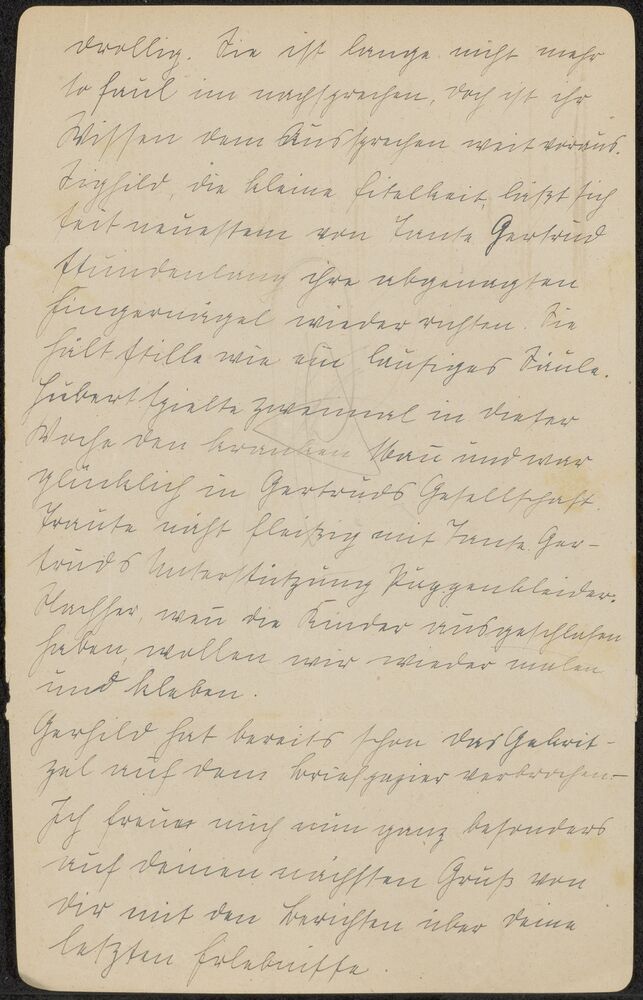 drollig. Sie ist lange nicht mehr
so faul im nachsprechen, doch ist ihr
Wissen dem Aussprechen weit voraus.
Sighild, die kleine Eitelkeit, läßt sich
seit neuestem von Tante Gertrud
stundenlang ihre abgenagten
Fingernägel wieder richten. Sie
hält stille wie ein läufiges Säule.
Hubert spielte zweimal in dieser
Woche den kranken Mañ und war
glücklich in Gertruds Gesellschaft.
Traute näht fleißig mit Tante Ger-
truds Unterstützung Puppenkleider.
Nachher, weñ die Kinder ausgeschlafen
haben, wollen wir wieder malen
und kleben.
Gerhild hat bereits schon das Gekrit-
zel auf dem Briefpapier verbrochen.-
Ich freue mich nun ganz besonders
auf deinen nächsten Gruß von
dir mit den Berichten über deine
letzten Erlebnisse.